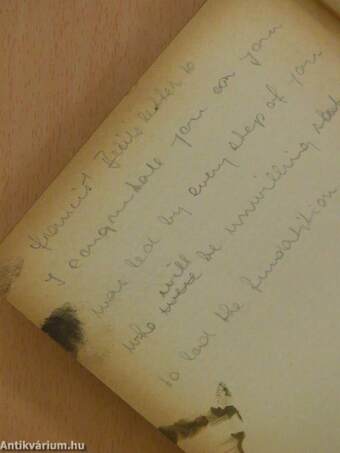 francis Bell's letter to
I congratulate you on your
was led by every step of your
will
who were be unwilling
to lead the
Antikvárium.hu